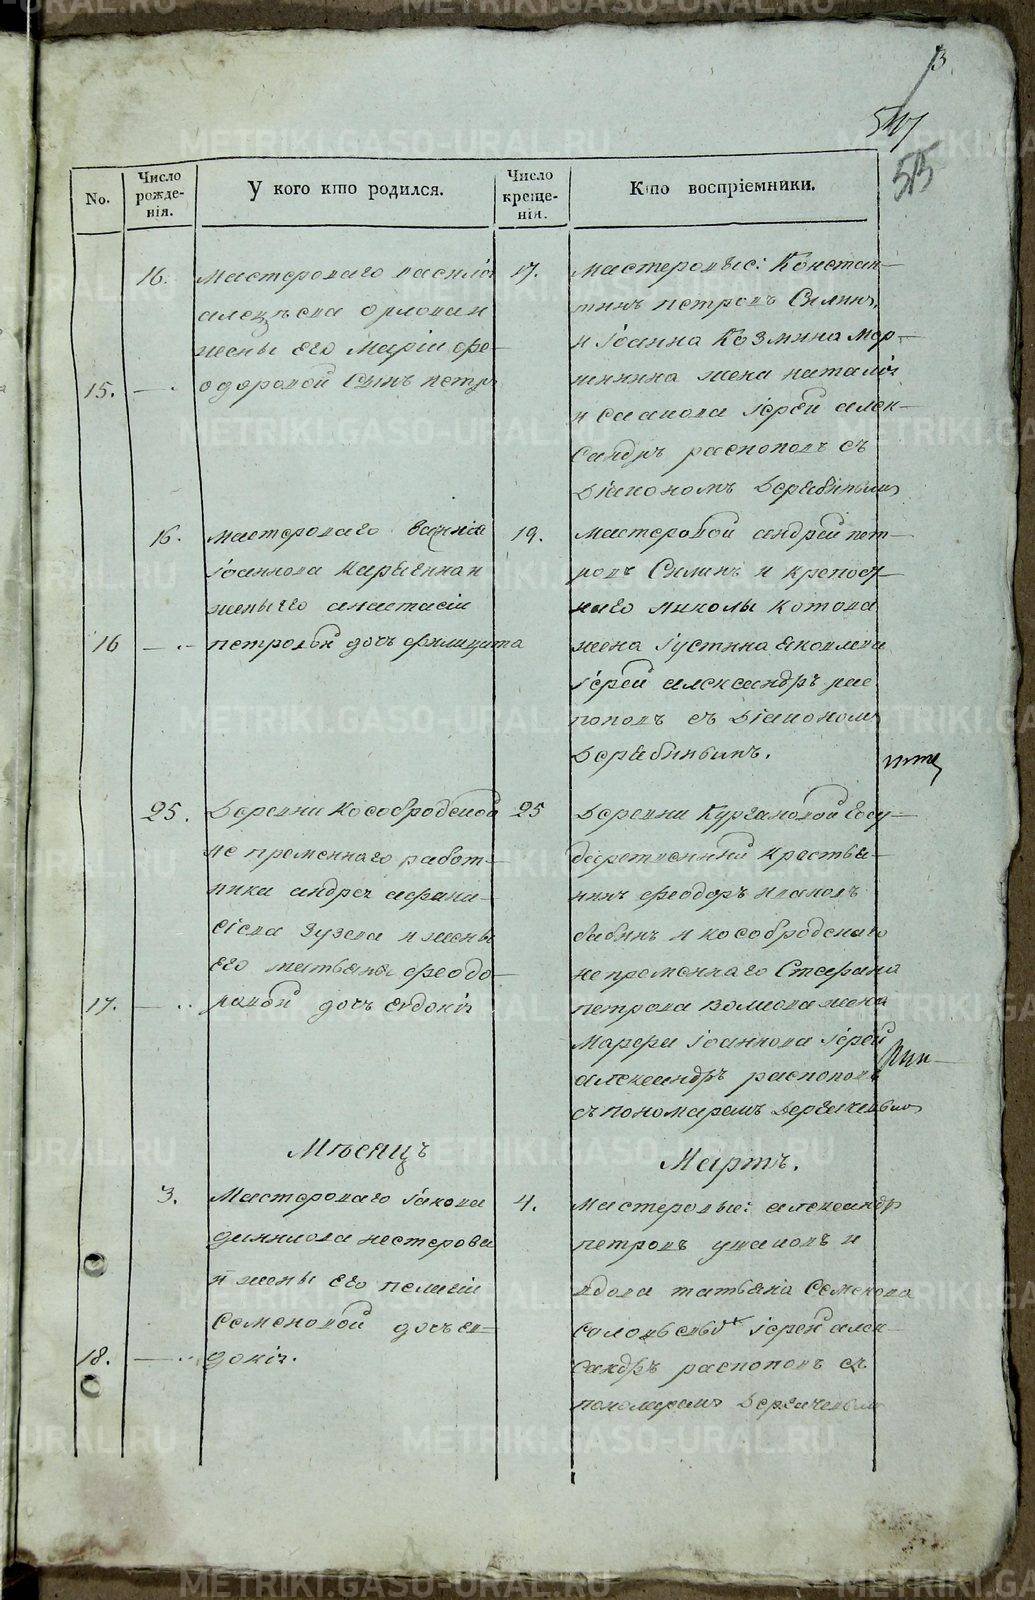 13
515
No.
Число рожде-нія.
У кого кто родился.
Число креще-нія.
Кто воспріемники.
16.
мастероваго василія
алеѯѣева орлова и
жены его маріи фе-
15. одоровой сынъ петръ
17.
мастеровые: Констан-
тинъ петровъ Силинъ,
и іоанна Козмина
жена наталія
іерей алек-
сандръ распоповъ съ
діакономъ Дерябинымъ
16.
мастероваго
іоаннова и
жены его анастасіи
16 петровой дочь филицата
19.
мастеровой андрей пет-
ровъ Силинъ и крепост-
наго николы котова
жена іустина яковлева
іерей александръ рас
поповъ съ діакономъ
Дерябинымъ.
25.
Деревни Кособродской
не пременнаго работ-
ника андрея афана-
сіева Зуева и жены
его татьяны феодо-
17. ровой дочь евдокія
25
Деревни Кургановой Госу-
дарственный крестья-
нинъ феодоръ ивановъ
бабинъ и кособродскаго
непременнаго Стефана
петрова волкова жена
Марфа іоаннова іерей
александръ распоповъ
съ пономаремъ Дерягинымъ
Мѣсяцъ
Мартъ.
3.
Мастероваго іакова
данилова нестерова
и жены его пелагіи
Семеновой дочь ев-
18. докія.
4.
мастеровые: александръ
петровъ ушаковъ и
вдова татьяна Семенова
іерей алек-
сандръ распоповъ съ
пономаремъ
METRIKI.GASO-URAL.RU